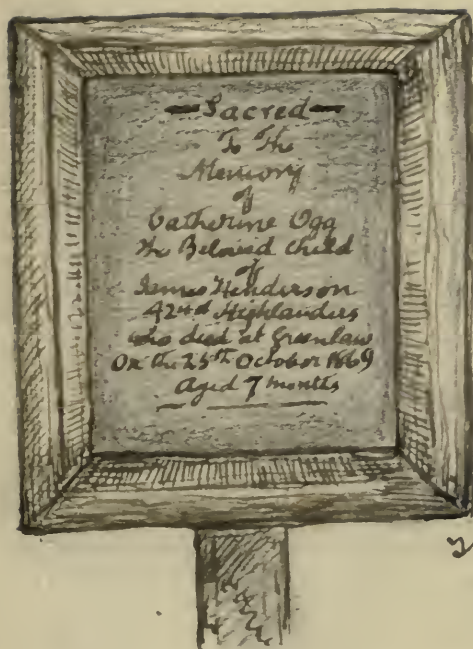 Sacred
To The
Memory
of
Catherine Ogg
The Beloved Child
of
James Henderson
42nd Highlanders
who died at Greenlaw
On the 25th October 1869
Aged 7 months